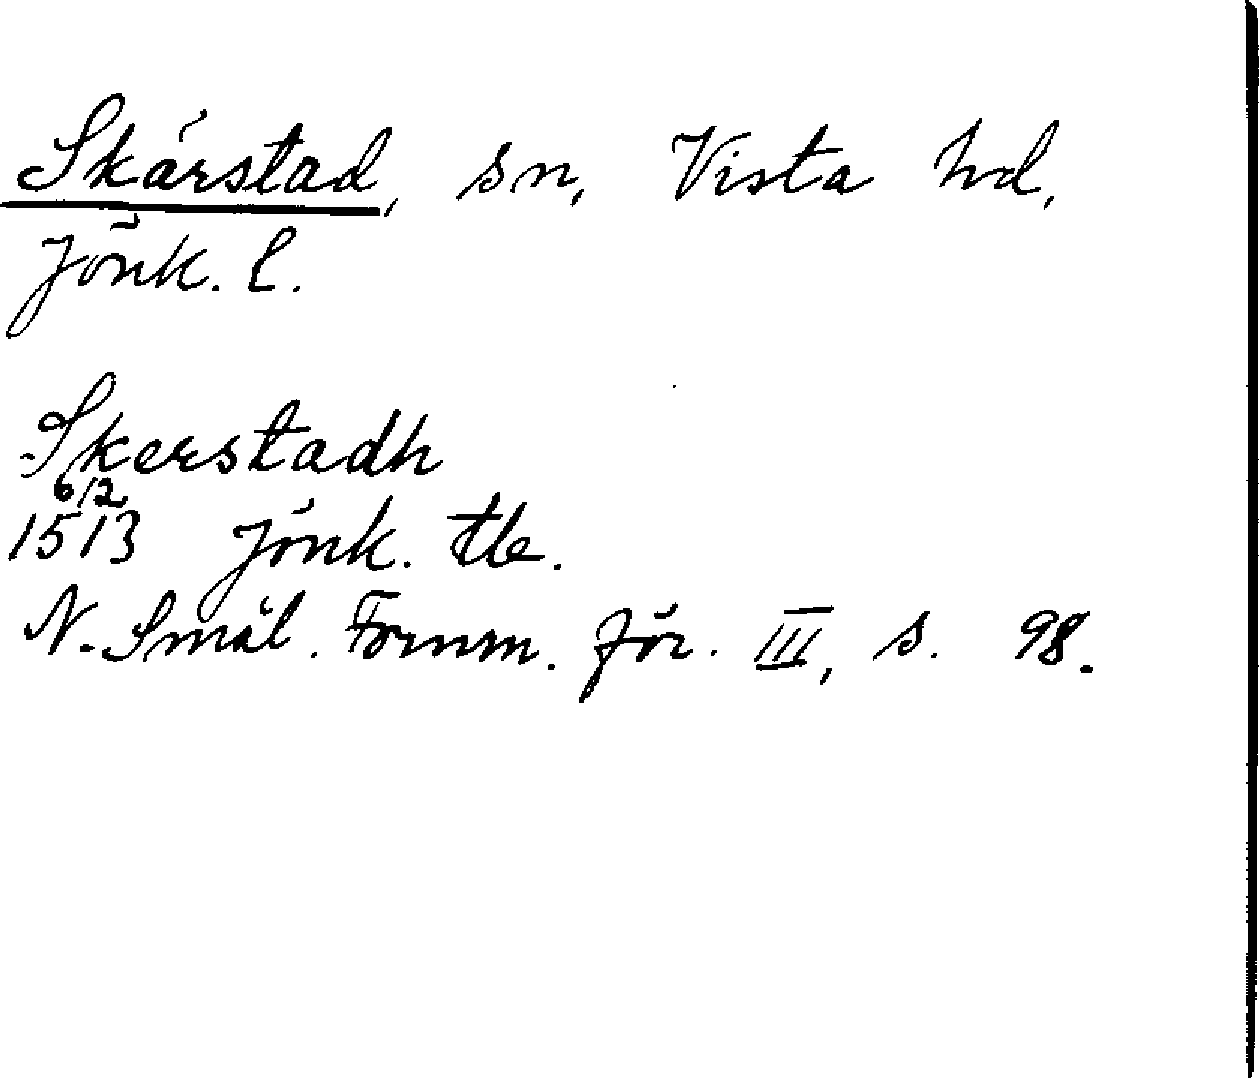 Skärstad, sn, Vista hd,
Jönk. l.
Skerstadh
6/2
1513 Jönk. tb.
N. Smål. Fornm. för. III, s. 98.